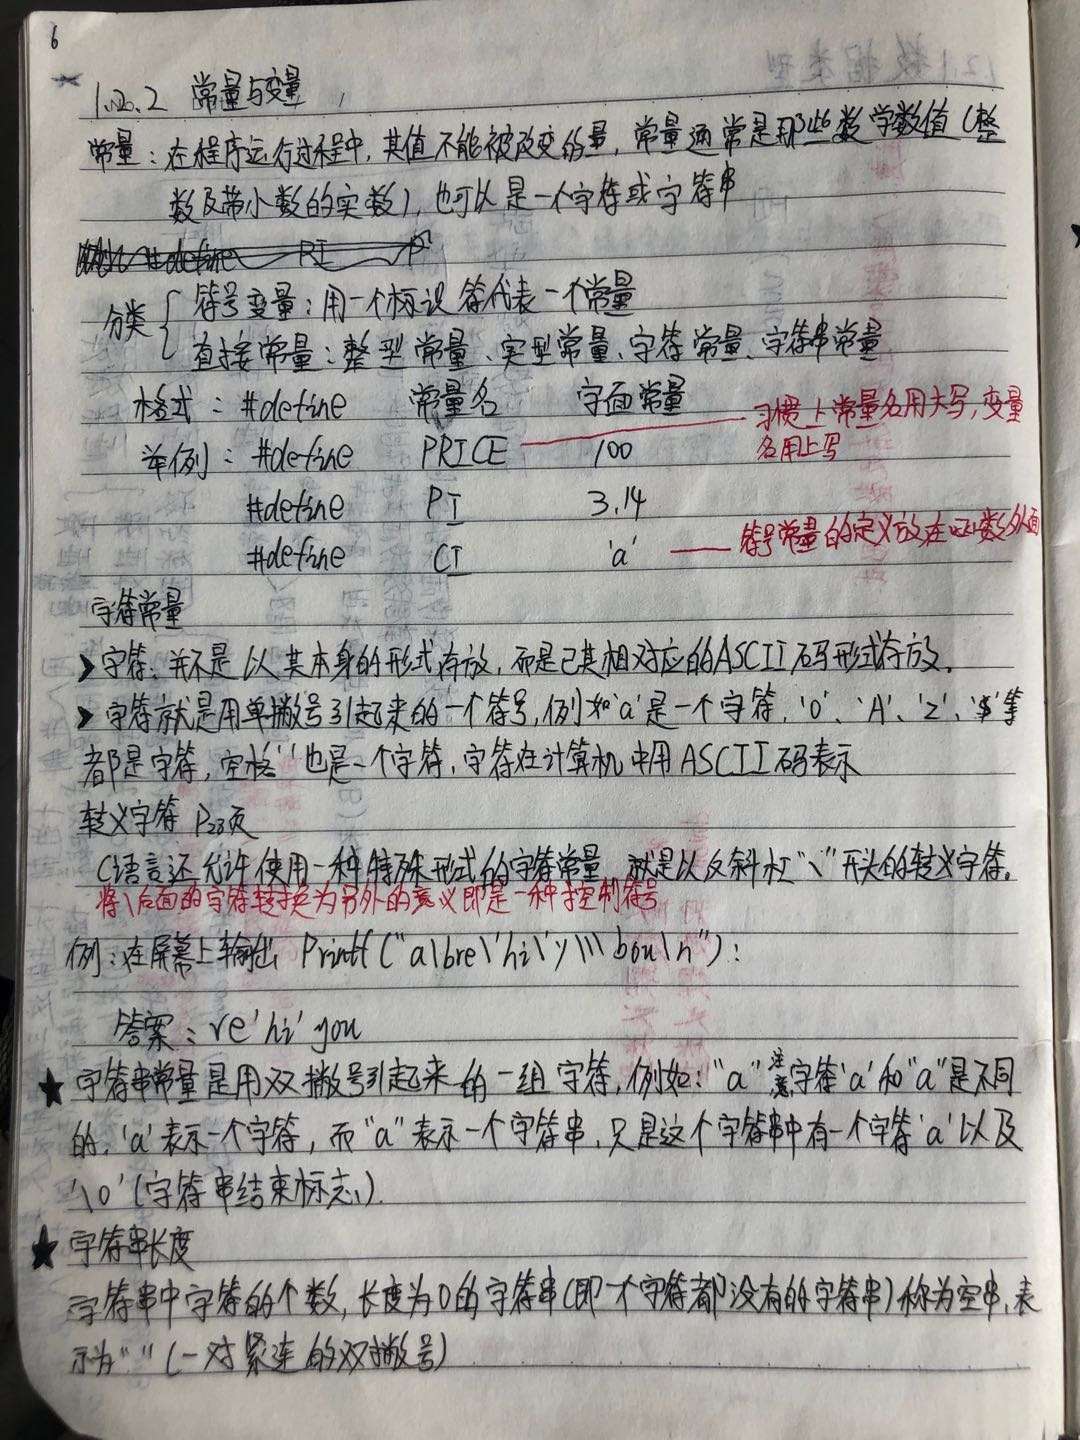 6
1.2.2 常量与变量
常量：在程序运行过程中，其值不能被改变的量，常量通常是那些数学数值（整
数及带小数的实数），也可以是一个字符或字符串
#define PI
分类 { 符号变量：用一个标识符代表一个常量
直接常量：整型常量、实型常量、字符常量、字符串常量
格式：#define 常量名 字面常量
习惯上常量名用大写，变量
举例：#define PRICE 100
名用上写
#define PI 3.14
#define CI 'a'
符号常量的定义放在函数外面
字符常量
> 字符：并不是以其本身的形式存放，而是已其相对应的ASCII码形式存放.
> 字符就是用单撇号引起来的一个符号，例如'a'是一个字符，'0'、'A'、'z'、'$'等
都是字符，空格' '也是一个字符，字符在计算机中用ASCII码表示
转义字符 P23页
C语言还允许使用一种特殊形式的字符常量，就是以反斜杠"\"开头的转义字符。
将\后面的字符转换为另外的意义即是一种控制符号
例：在屏幕上输出 Printf("a\bre\'hi\'y\\\bou\n"):
答案：re'hi'you
★ 字符串常量是用双撇号引起来的一组字符，例如："a" 注意字符'a'和"a"是不同
的，'a'表示一个字符，而"a"表示一个字符串，只是这个字符串中有一个字符'a'以及
'\0'(字符串结束标志).
★ 字符串长度
字符串中字符的个数，长度为0的字符串(即一个字符都没有的字符串)称为空串，表
示为""(一对紧连的双撇号)